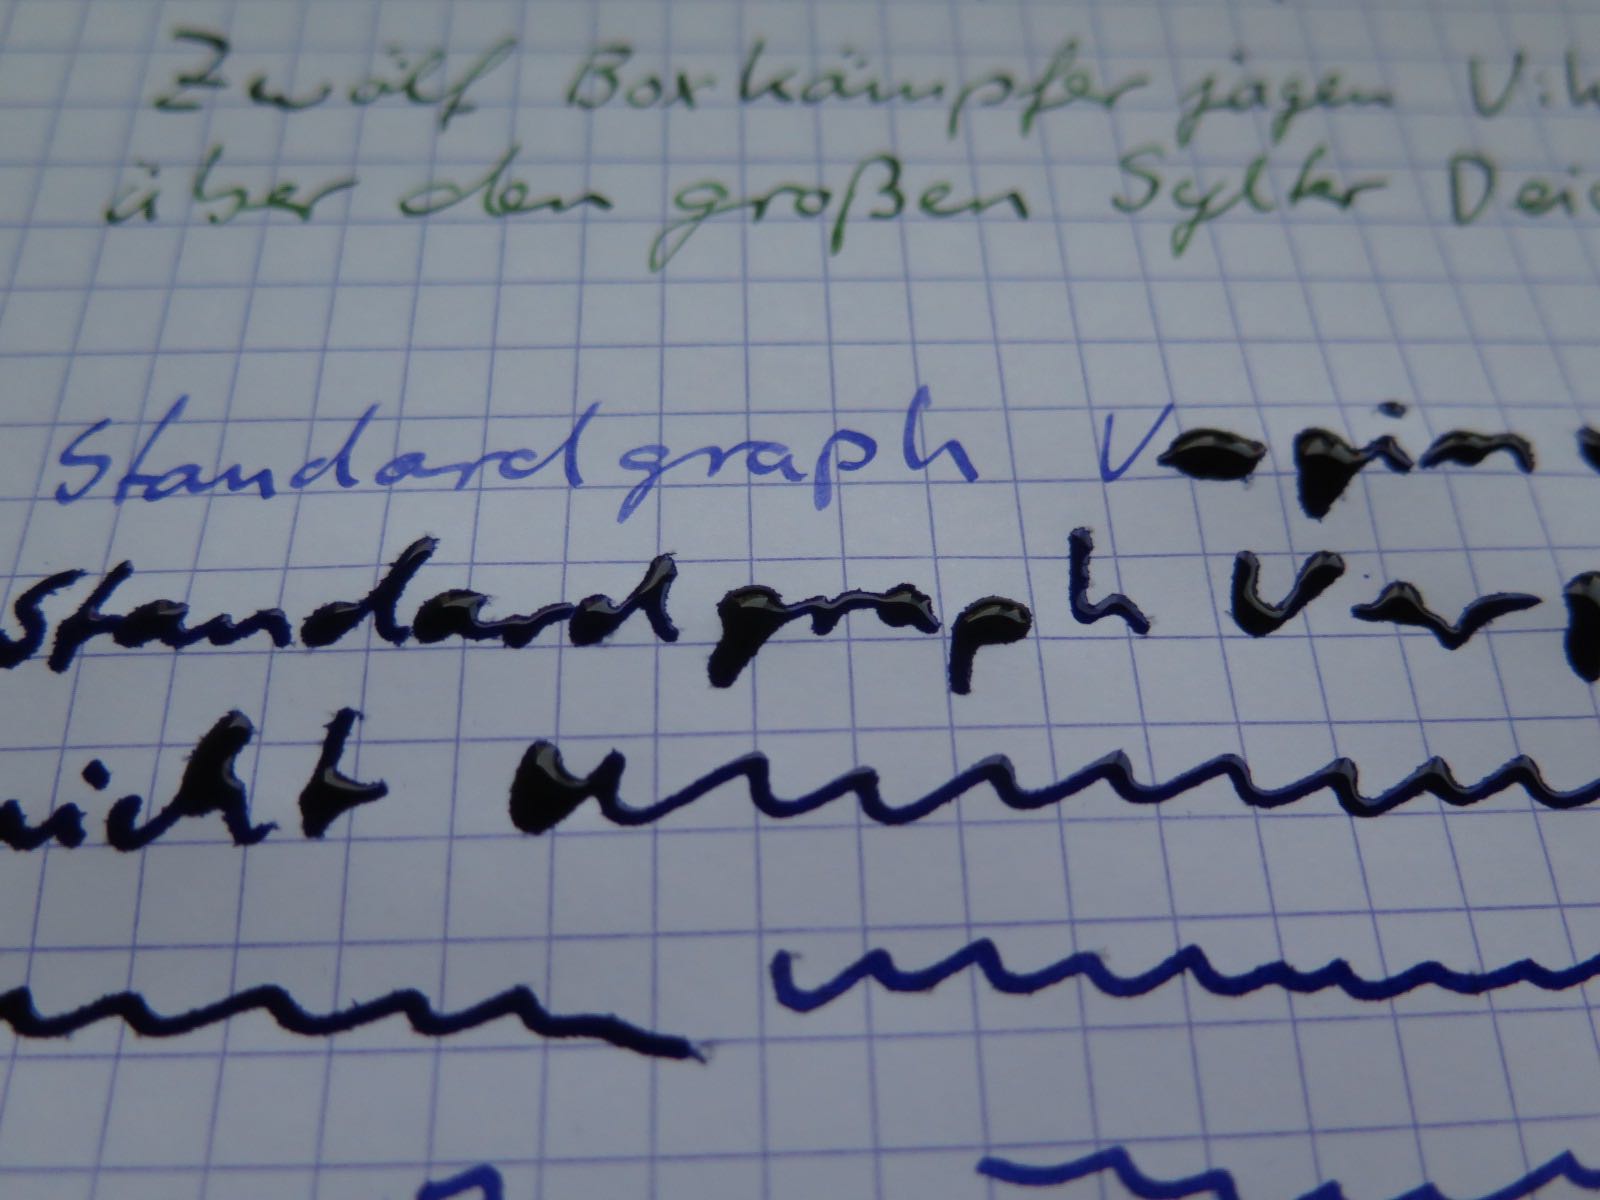 Zwölf Boxkämpfer jagen Vik
über den großen Sylter Deic
Standardgraph
Standardgraph
nicht